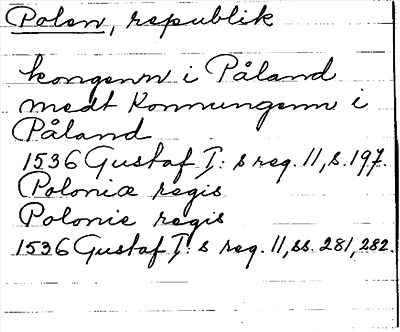 Polen, republik
kongenn i Påland
medt Konnungenn i
Påland
1536 Gustaf I: s reg. 11, s. 197.
Poloniæ regis
Polonie regis
1536 Gustaf I: s reg. 11, ss. 281, 282.